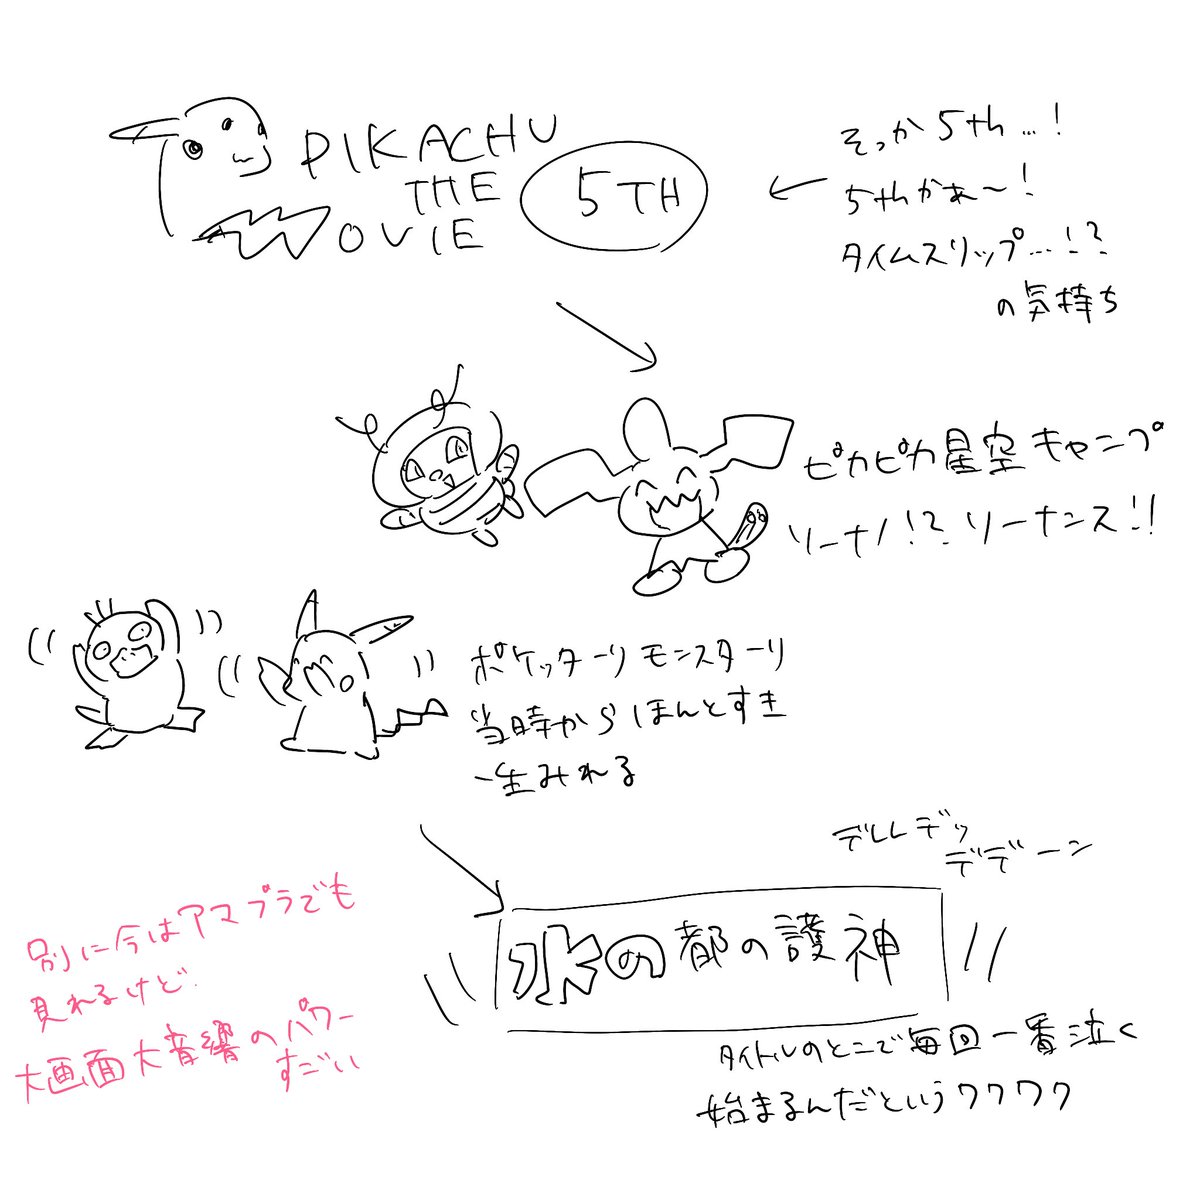 PIKACHU
THE
MOVIE
5TH
そっか5th…!
5thかぁ〜!
タイムスリップ…!?
の気持ち
ピカピカ星空キャンプ
ソーナノ!?ソーナンス!!
ポケッターリモンスターリ
当時からほんとすき
一生みれる
デレレデッ
デデーン
水の都の護神
タイトルのとこで毎回一番泣く
始まるんだというワクワク
別に今はアマプラでも
見れるけど
大画面大音響のパワー
すごい